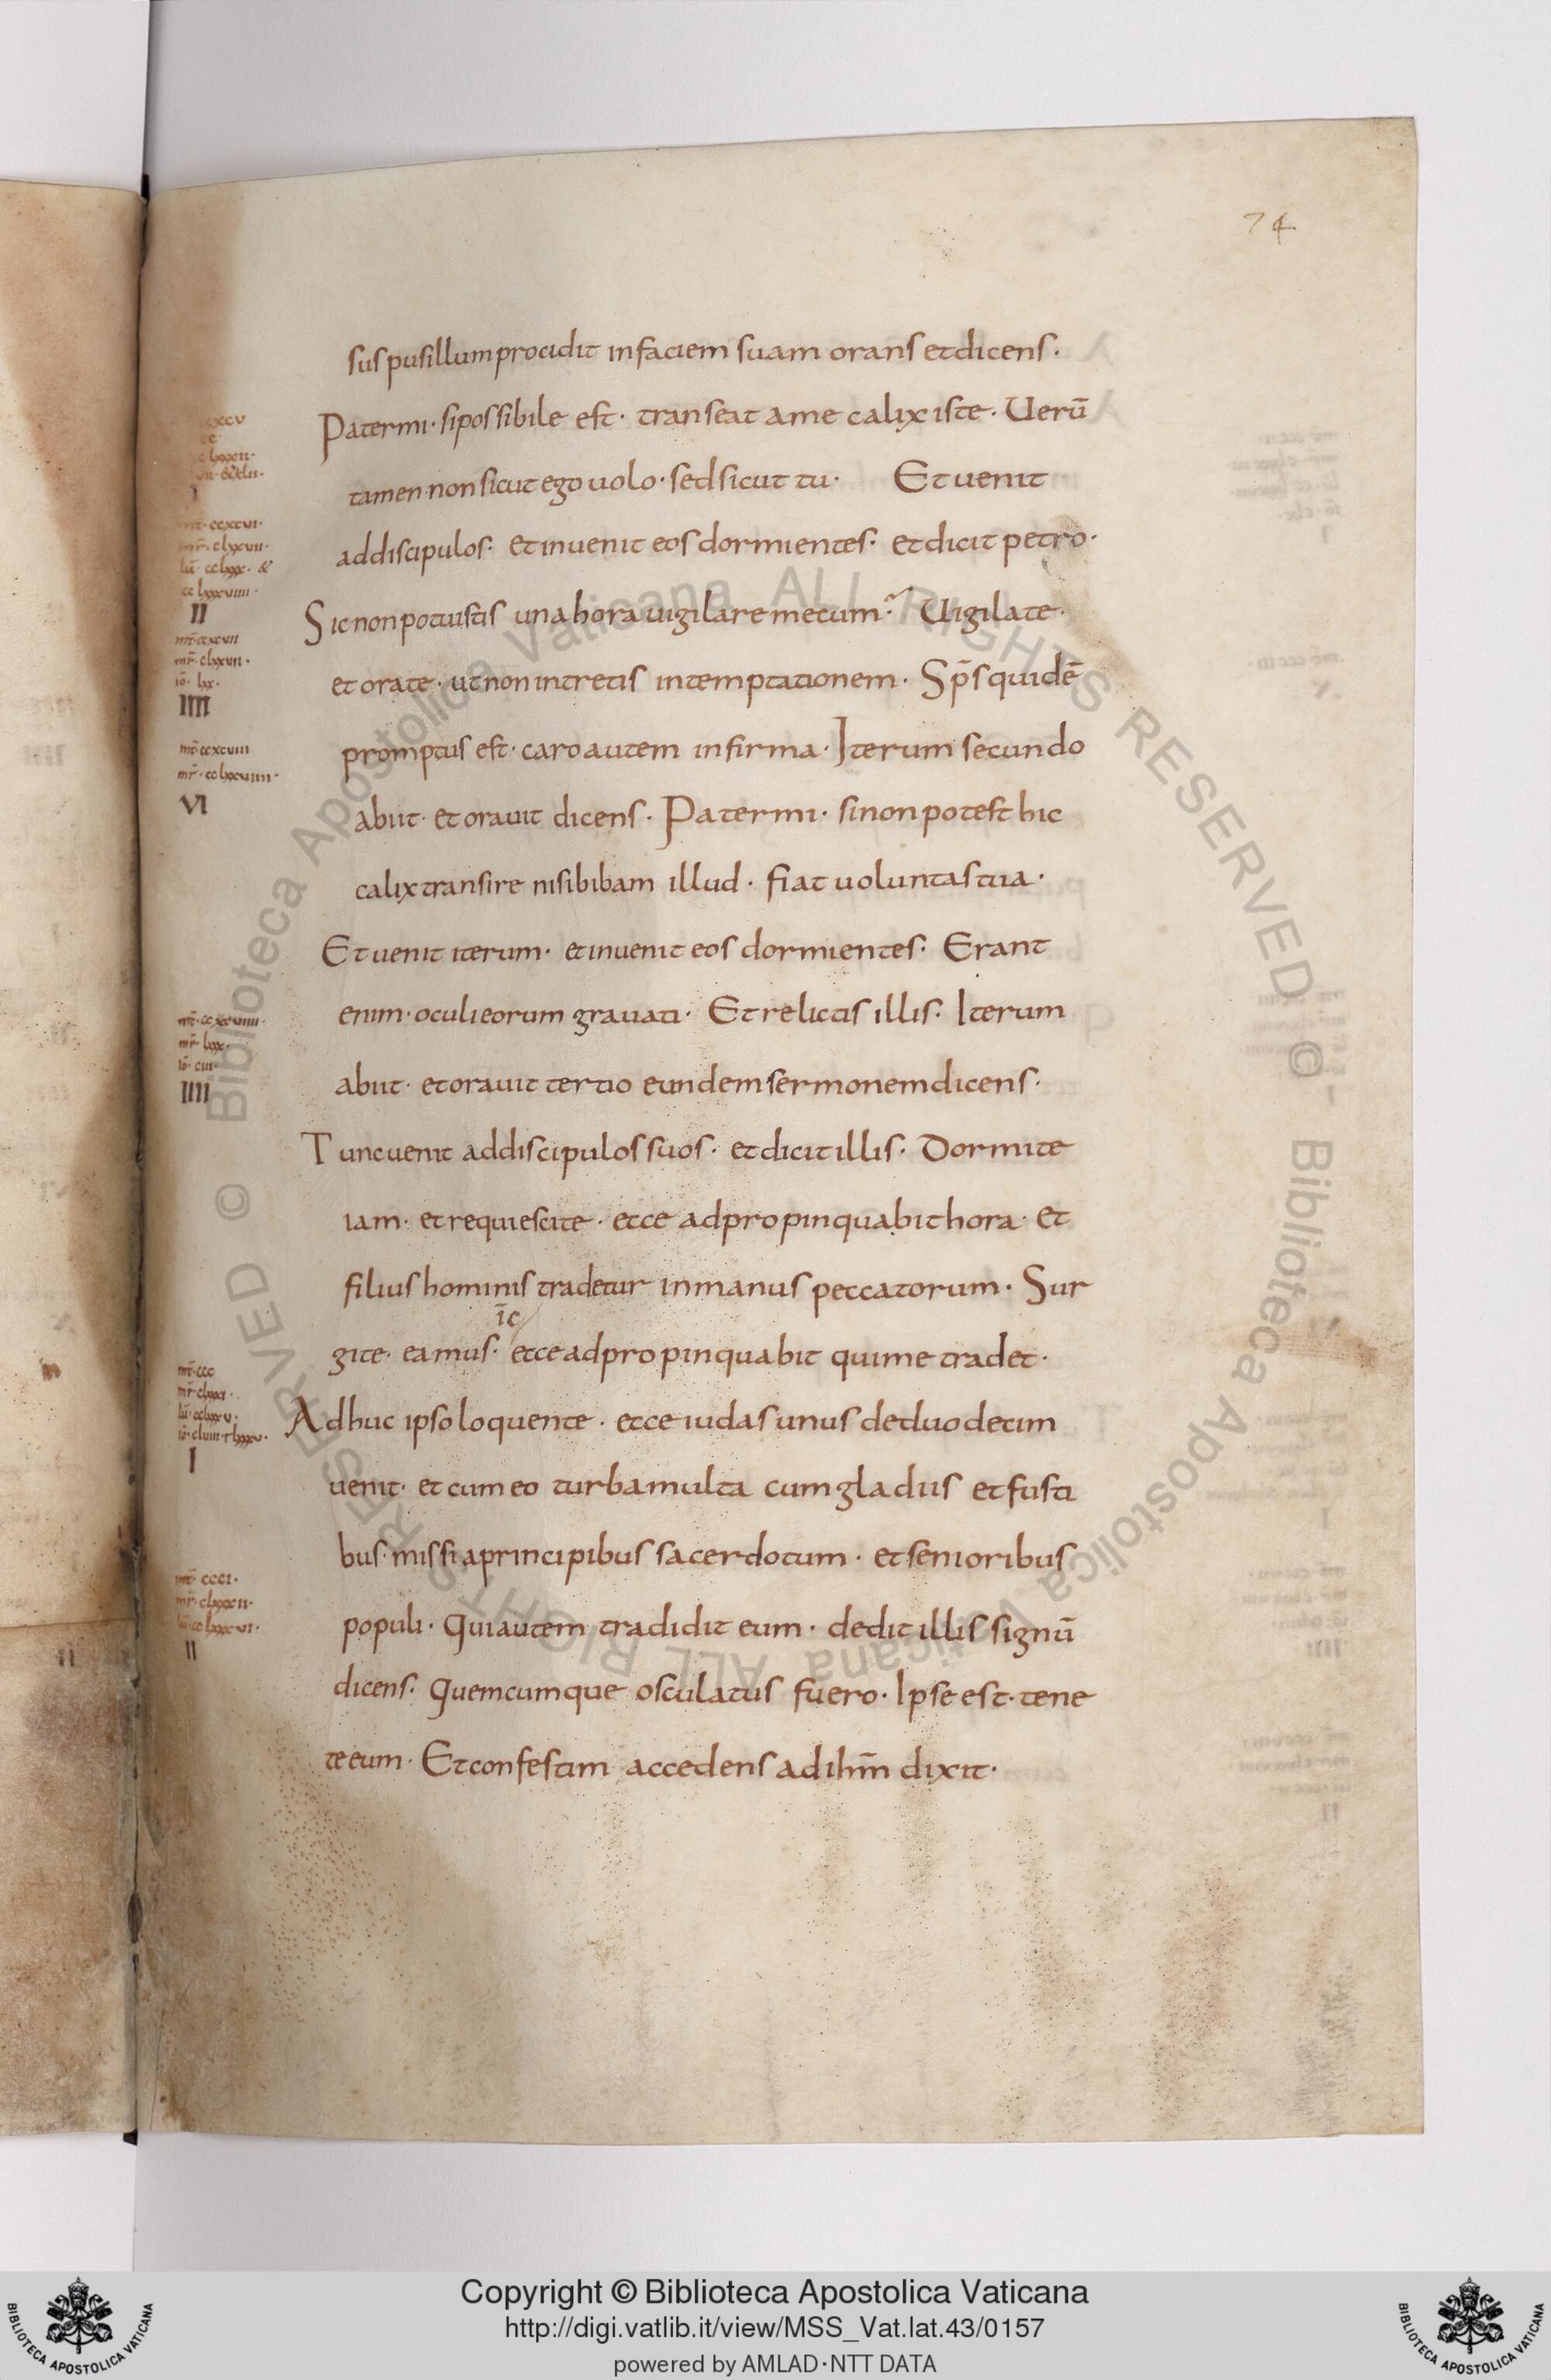 74.
sus pusillum procidit in faciem suam orans et dicens·
Pater mi· si possibile est· transeat a me calix iste· Uerū
tamen non sicut ego uolo· sed sicut tu· Et uenit
ad discipulos· et inuenit eos dormientes· et dicit petro·
Sic non potuistis una hora uigilare mecum? Uigilate·
et orate· ut non intretis in temptationem· Sp̄s quidē
promptus est· caro autem infirma· Iterum secundo
abiit· et orauit dicens· Pater mi· si non potest hic
calix transire nisi bibam illud· fiat uoluntas tua·
Et uenit iterum· et inuenit eos dormientes· Erant
enim· oculi eorum grauati· Et relictis illis· Iterum
abiit· et orauit tertio eundem sermonem dicens·
Tunc uenit ad discipulos suos· et dicit illis· Dormite
iam· et requiescite· ecce adpropinquabit hora· et
filius hominis tradetur in manus peccatorum· Sur
īc
gite· eamus· ecce adpropinquabit qui me tradet·
Adhuc ipso loquente· ecce iudas unus de duodecim
uenit· et cum eo turba multa cum gladiis et fusti
bus· missi a principibus sacerdotum· et senioribus
populi· Qui autem tradidit eum· dedit illis signū
dicens· Quemcumque osculatus fuero· Ipse est· tene
te eum· Et confestim accedens ad ihm̄ dixit·
II
mr̄· clxxvii·
iō· lxx·
IIII
mt̄· ccxcviii
VI
mr̄· lxxx·
IIII
mt̄· ccc
I
mt̄· ccci·
mr̄· clxxxii·
II
Biblioteca Apostolica Vaticana ALL RIGHTS RESERVED ©
Biblioteca Apostolica Vaticana ALL RIGHTS RESERVED ©
Copyright © Biblioteca Apostolica Vaticana
http://digi.vatlib.it/view/MSS_Vat.lat.43/0157
powered by AMLAD·NTT DATA
BIBLIOTECA APOSTOLICA VATICANA
BIBLIOTECA APOSTOLICA VATICANA